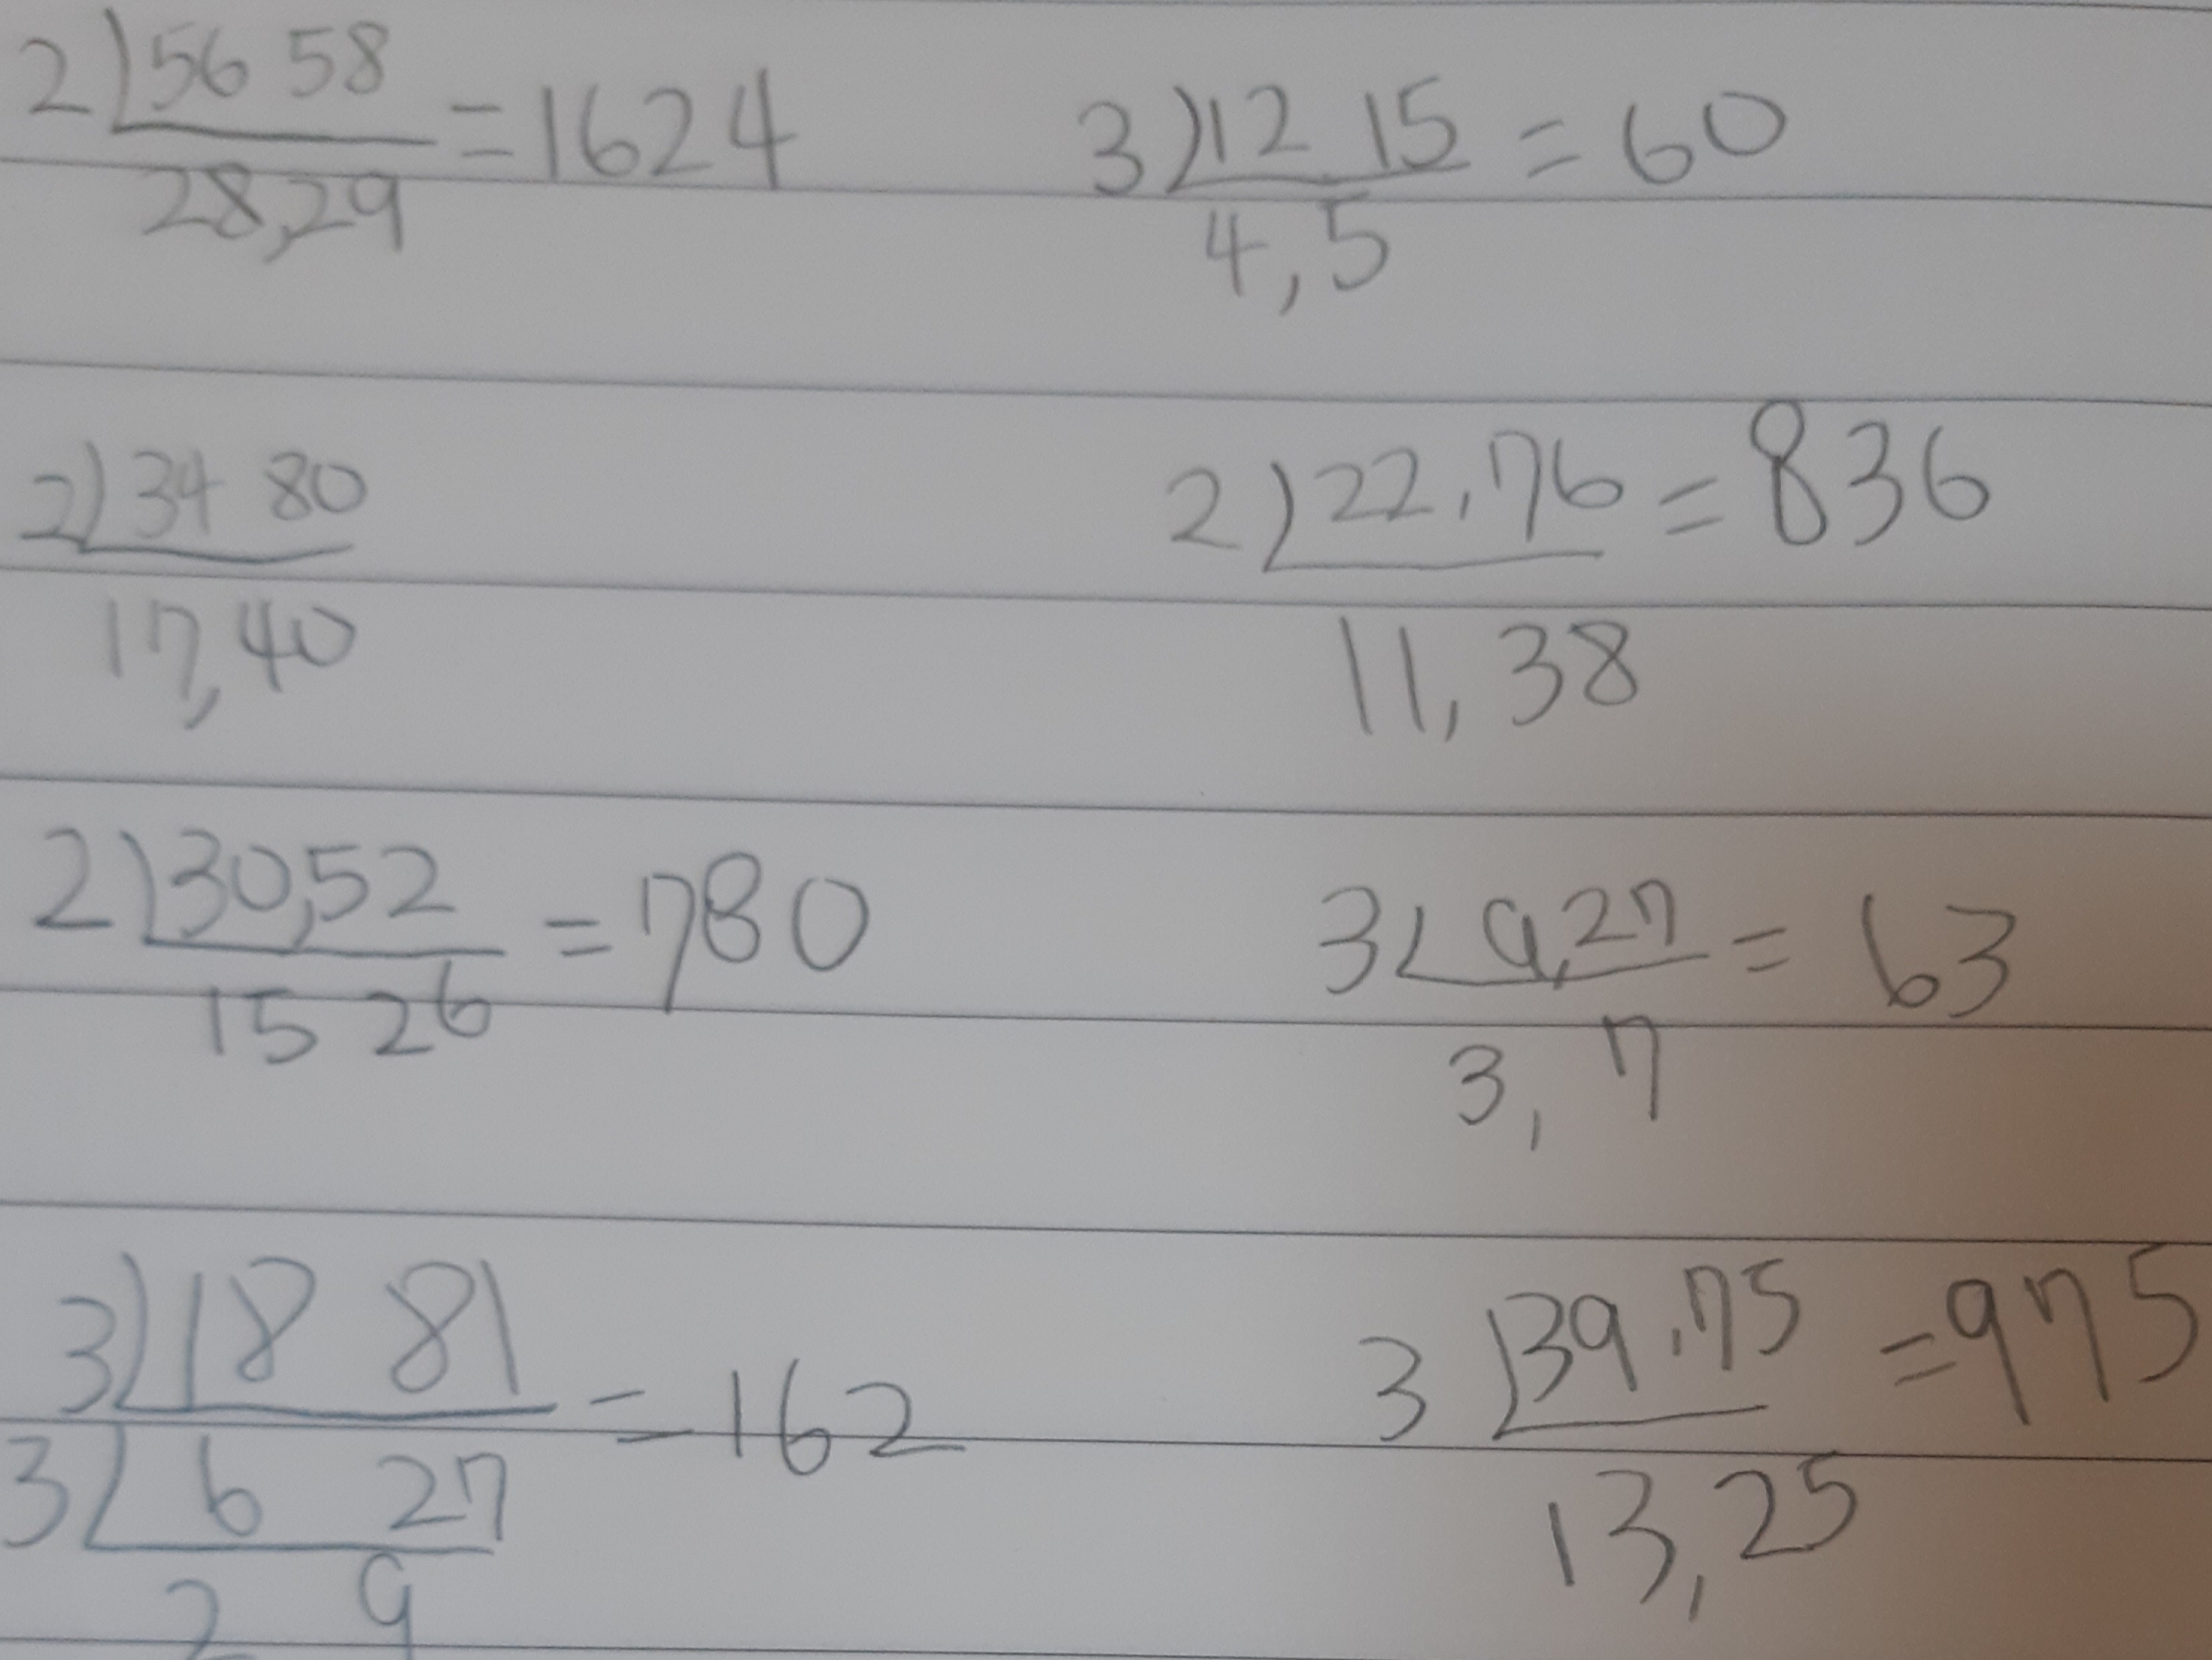 2)56 58 = 1624
28,29
3)12 15 = 60
4,5
2)34 80
17,40
2)22,76 = 836
11,38
2)30,52 = 780
15 26
3)9,27 = 63
3,7
3)18 81 = 162
3)6 27
2 9
3)39,75 = 975
13,25